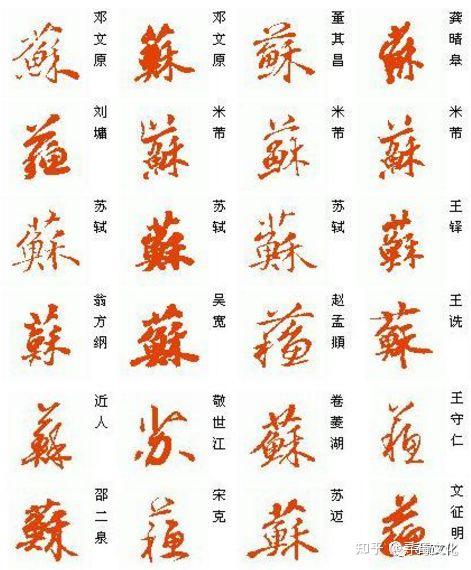 蘇 邓文原 蘇 邓文原 蘇 董其昌 蘇 龚晴皋
蘓 刘墉 蘇 米芾 蘇 米芾 蘇 米芾
蘇 苏轼 蘇 苏轼 蘇 苏轼 蘇 王铎
蘇 翁方纲 蘇 吴宽 蘓 赵孟頫 蘇 王诜
蘇 近人 苏 敬世江 蘇 卷菱湖 蘓 王守仁
蘇 邵二泉 蘓 宋克 蘇 苏迈 蘓 文征明
知乎